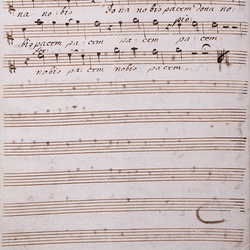 na nobis dona nobis pacem dona no-
bis pacem pacem pacem pacem
nobis pacem nobis pacem